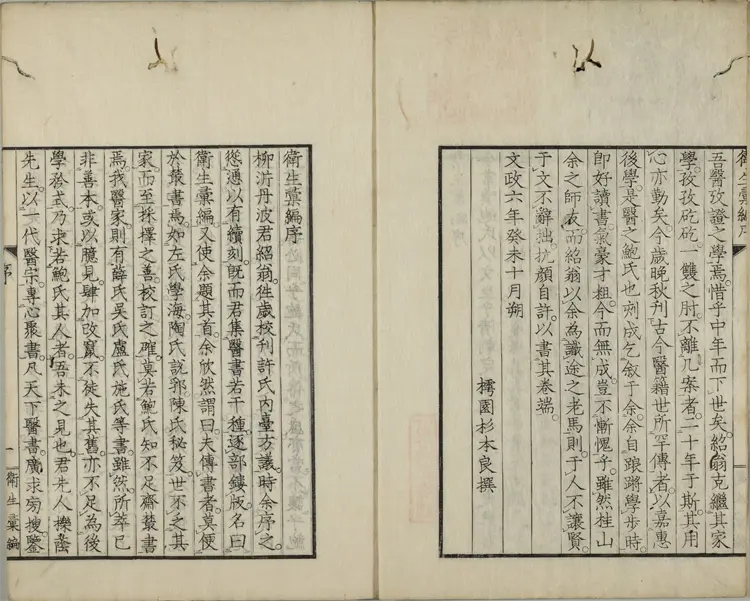 衛生彙編序
吾醫攷證之學焉惜乎中年而下世矣紹翁克繼其家
學孜孜矻矻一雙之肘不離几案者二十年于斯其用
心亦勤矣今歲晚秋刊古今醫籍世所罕傳者以嘉惠
後學是醫之鮑氏也刻成乞叙于余余自踉蹡學步時
即好讀書氣豪才粗今而無成豈不慚愧乎雖然桂山
余之師友而紹翁以余為識途之老馬則于人不讓賢
于文不辭拙抗顏自許以書其卷端
文政六年癸未十月朔
樗園杉本良撰
衛生彙編序
柳沜丹波君紹翁徃歲校刊許氏內臺方議時余序之
慫慂以有續刻既而君集醫書若干種逐部鏤版名曰
衛生彙編又使余題其首余欣然謂曰夫傳書者莫便
於叢書焉如左氏學海陶氏說郛陳氏秘笈世不乏其
家而至採擇之善校訂之確莫若鮑氏知不足齋叢書
焉我醫家則有薛氏吳氏盧氏施氏等書雖然所萃已
非善本或以臆見肆加改竄不徒失其舊亦不足為後
學矜式乃求若鮑氏其人者吾未之見也君先人櫟蔭
先生以一代醫宗專心聚書凡天下醫書廣求旁搜鑒
序
一
衛生彙編